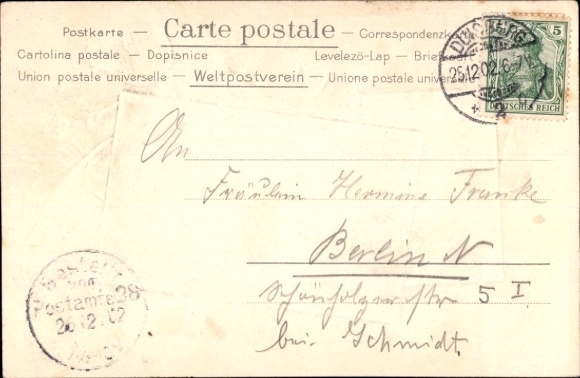 Postkarte — Carte postale — Correspondenzkarte
Cartolina postale — Dopisnice Levelezö-Lap — Brief
Union postale universelle — Weltpostverein — Unione postale univers
5
DEUTSCHES REICH
25.12.02.6-7N.
* 2
An
Fräulein Hermine Franke
Berlin N
Schönholzerstr 5 I.
bei Schmidt.
Bestellt
vom
Postamte 28
26.12.02